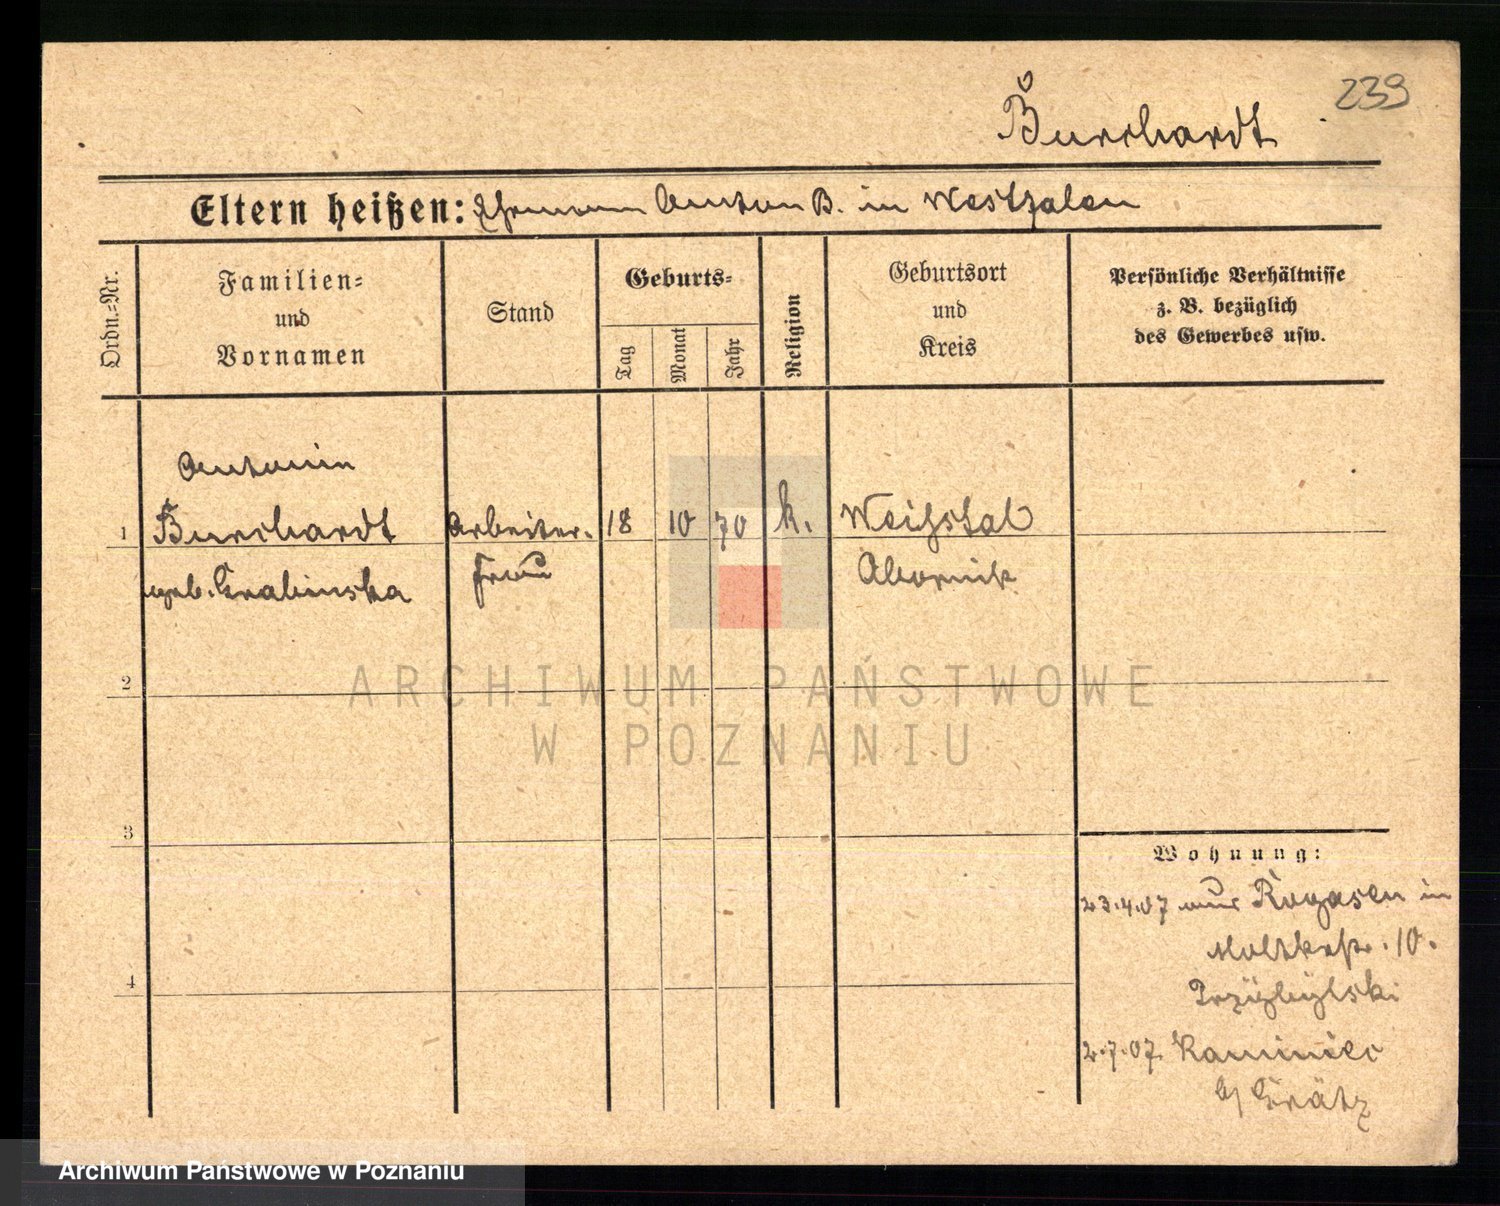 239
Burchardt
Eltern heißen: Ehemann Anton B. in Westfalen
Ordn.-Nr.
Familien-
und
Vornamen
Stand
Geburts-
Tag
Monat
Jahr
Religion
Geburtsort
und
Kreis
Persönliche Verhältnisse
z. B. bezüglich
des Gewerbes usw.
Antonin
1 Burchardt Arbeiter- 18 10 70 k. Weihstal
geb. Grabinska Frau Obornik
2
ARCHIWUM PAŃSTWOWE
W POZNANIU
3
Wohnung:
23.4.07 aus Rogasen in
Moltkestr. 10.
4
Przÿbÿlski
2.7.07. Kaminiec
b/ Grätz
Archiwum Państwowe w Poznaniu